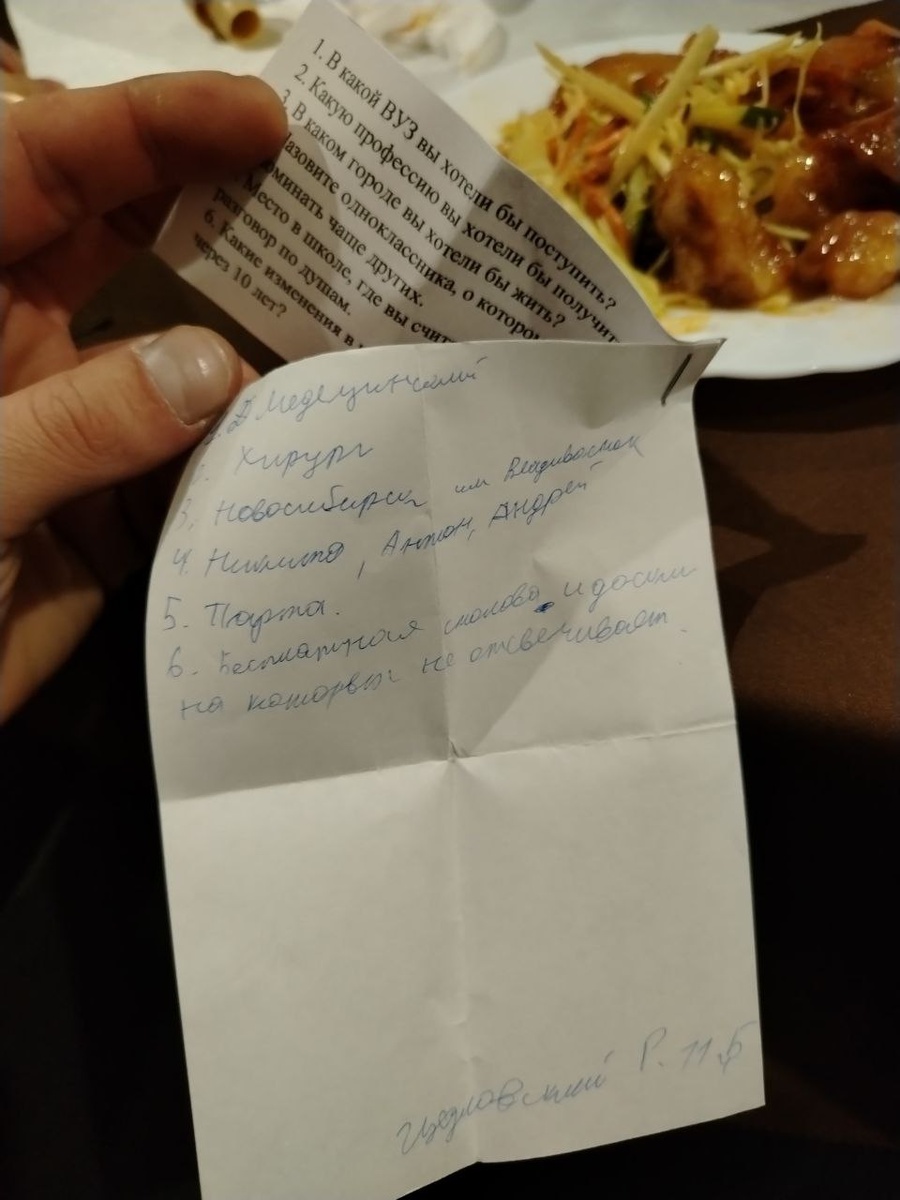 1. В какой ВУЗ вы хотели бы поступить?
2. Какую профессию вы хотели бы получить
3. В каком городе вы хотели бы жить?
азовите одноклассника, о котором
оминать чаще других.
Место в школе, где вы счит
разговор по душам.
6. Какие изменения в
через 10 лет?
1. В Медецинский
2. Хирург
3. Новосибирск или Владивосток
4. Никита, Антон, Андрей
5. Парта.
6. Бесплатная столовая и доски
на которых не отсвечивает.
Р. 11 Б